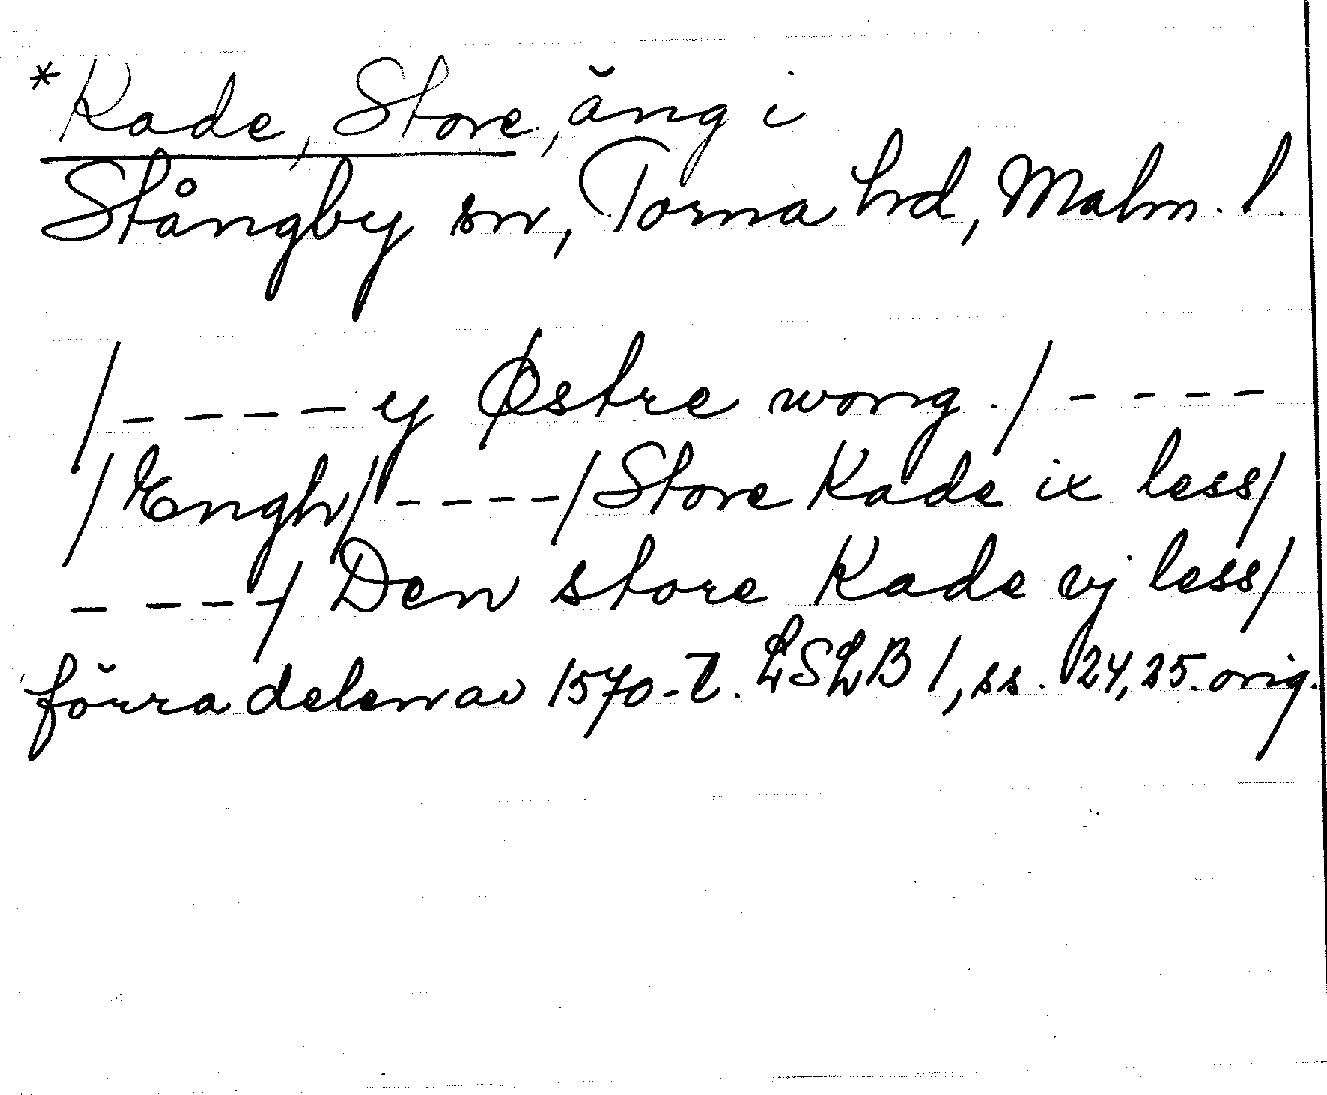 *Kade, Store, äng i
Stångby sn, Torna hd, Malm. l.
/ - - - - y Østre wong. / - - - -
/ Engh / - - - - / Store Kade ix less /
- - - - / Den store Kade vj less /
förra delen av 1570-t. LSLB 1, ss. 124, 25. orig.